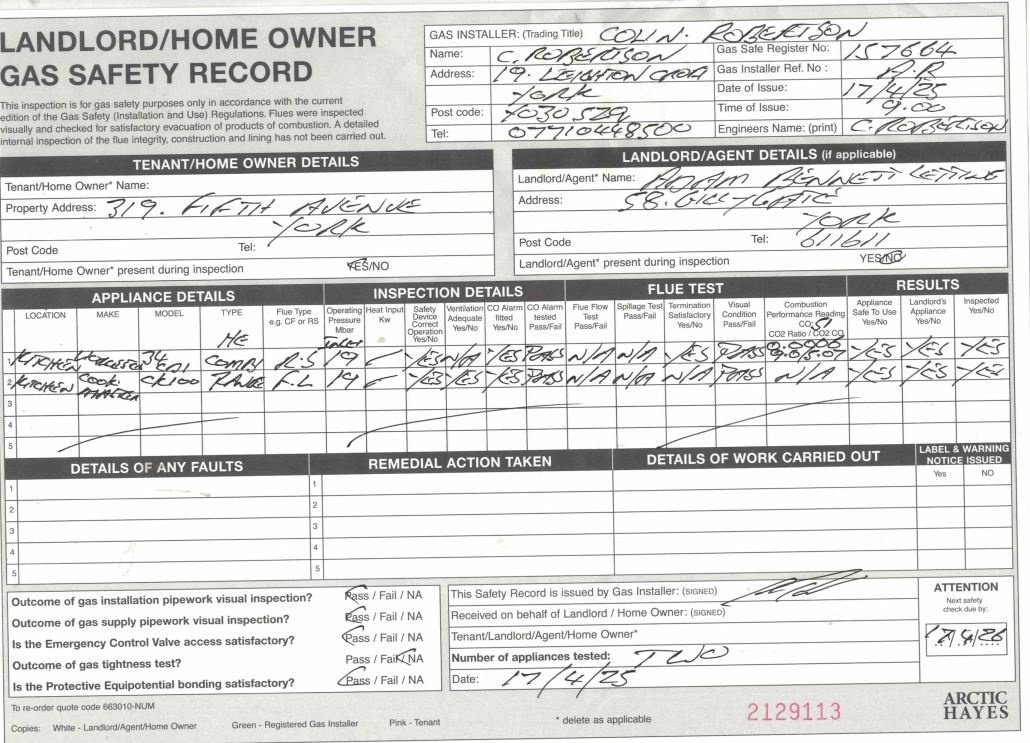 LANDLORD/HOME OWNER
GAS SAFETY RECORD
This inspection is for gas safety purposes only in accordance with the current
edition of the Gas Safety (Installation and Use) Regulations. Flues were inspected
visually and checked for satisfactory evacuation of products of combustion. A detailed
internal inspection of the flue integrity, construction and lining has not been carried out.
GAS INSTALLER: (Trading Title) COLIN. ROBERTSON
Name: C. ROBERTSON Gas Safe Register No: 157664
Address: 19. LEIGHTON CROFT Gas Installer Ref. No : A.R
YORK Date of Issue: 17/4/25
Post code: YO30 5ZQ Time of Issue: 9.00
Tel: 07710448500 Engineers Name: (print) C. ROBERTSON
TENANT/HOME OWNER DETAILS
Tenant/Home Owner* Name:
Property Address: 319. FIFTH AVENUE
YORK
Post Code Tel:
Tenant/Home Owner* present during inspection YES/NO
LANDLORD/AGENT DETAILS (if applicable)
Landlord/Agent* Name: ADAM BENNETT LETTING
Address: 58.
YORK
Post Code Tel: 611611
Landlord/Agent* present during inspection YES/NO
APPLIANCE DETAILS INSPECTION DETAILS FLUE TEST RESULTS
LOCATION MAKE MODEL TYPE Flue Type e.g. CF or RS Operating Pressure Mbar Heat Input Kw Safety Device Correct Operation Yes/No Ventilation Adequate Yes/No CO Alarm fitted Yes/No CO Alarm tested Pass/Fail Flue Flow Test Pass/Fail Spillage Test Pass/Fail Termination Satisfactory Yes/No Visual Condition Pass/Fail Combustion Performance Reading CO2 CO2 Ratio / CO2 CO Appliance Safe To Use Yes/No Landlord's Appliance Yes/No Inspected Yes/No
HE INLET
1 KITCHEN 34 CDI COMBI R.S 19 YES N/A YES PASS N/A N/A YES PASS YES YES YES
2 KITCHEN COOK MASTER CK100 RANGE F.L 19 YES YES YES PASS N/A N/A N/A PASS N/A YES YES YES
3
4
5
DETAILS OF ANY FAULTS REMEDIAL ACTION TAKEN DETAILS OF WORK CARRIED OUT LABEL & WARNING NOTICE ISSUED
Yes NO
1 1
2 2
3 3
4 4
5 5
Outcome of gas installation pipework visual inspection? Pass / Fail / NA
Outcome of gas supply pipework visual inspection? Pass / Fail / NA
Is the Emergency Control Valve access satisfactory? Pass / Fail / NA
Outcome of gas tightness test? Pass / Fail / NA
Is the Protective Equipotential bonding satisfactory? Pass / Fail / NA
This Safety Record is issued by Gas Installer: (SIGNED)
Received on behalf of Landlord / Home Owner: (SIGNED)
Tenant/Landlord/Agent/Home Owner*
Number of appliances tested: TWO
Date: 17/4/25
ATTENTION
Next safety
check due by:
17.4.26
To re-order quote code 663010-NUM
Copies: White - Landlord/Agent/Home Owner Green - Registered Gas Installer Pink - Tenant * delete as applicable
2129113
ARCTIC
HAYES